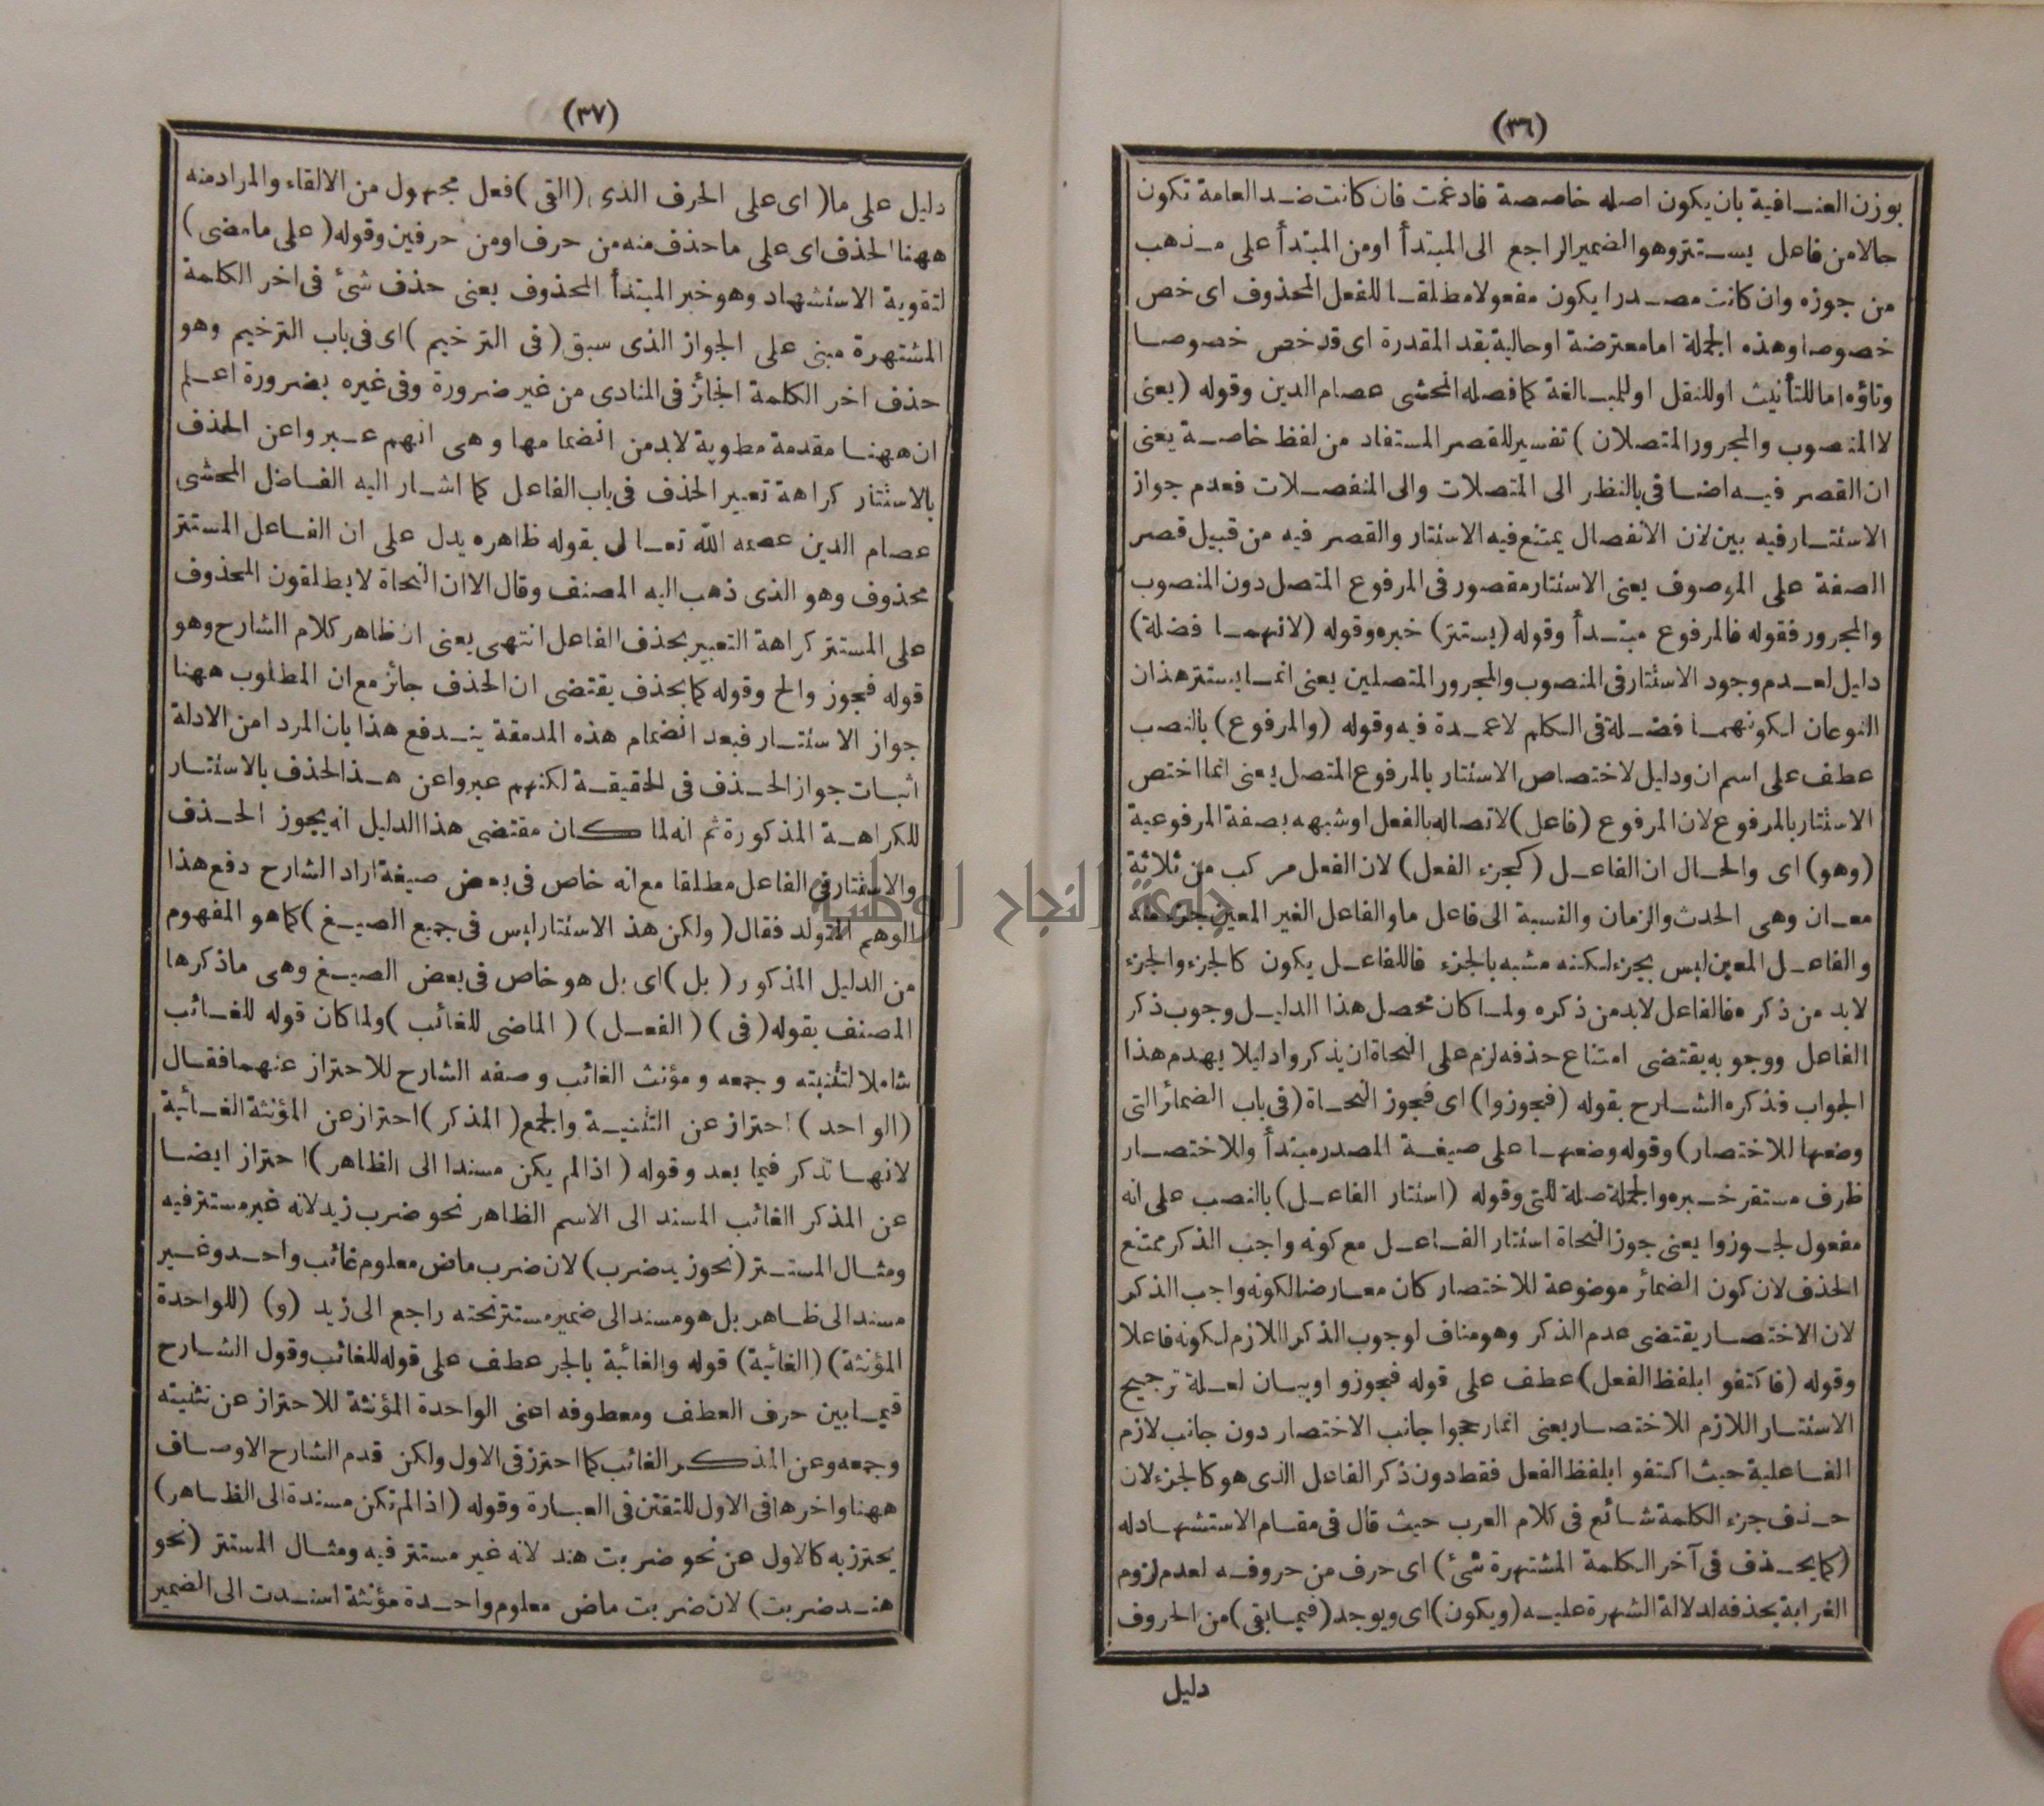 (٣٦)
بوزن العنافية بان يكون اصله خاصصة فادغمت فان كانت ضد العامة تكون
حالا من فاعل يستتر وهو الضمير الراجع الى المبتدأ او من المبتدأ على مذهب
من جوزه وان كانت مصدرا يكون مفعولا مطلقا للفعل المحذوف اى خص
خصوصا وهذه الجملة اما معترضة او حالية بقد المقدرة اى قد خص خصوصا
وتاؤه اما للتأنيث او للنقل او للمبالغة كما فصله المحشى عصام الدين وقوله (يعنى
لا المنصوب والمجرور المتصلان) تفسير للقصر المستفاد من لفظ خاصة يعنى
ان القصر فيه اضافى بالنظر الى المتصلات والى المنفصلات فعدم جواز
الاستتار فيه بين لان الانفصال يمتنع فيه الاستتار والقصر فيه من قبيل قصر
الصفة على الموصوف يعنى الاستتار مقصور فى المرفوع المتصل دون المنصوب
والمجرور فقوله فالمرفوع مبتدأ وقوله (يستتر) خبره وقوله (لانهما فضلة)
دليل لعدم وجود الاستتار فى المنصوب والمجرور المتصلين يعنى انما يستتر هذان
النوعان لكونهما فضلة فى الكلم لا عمدة فيه وقوله (والمرفوع) بالنصب
عطف على اسم ان ودليل لاختصاص الاستتار بالمرفوع المتصل يعنى انما اختص
الاستتار بالمرفوع لان المرفوع (فاعل) لاتصاله بالفعل او شبهه بصفة المرفوعية
(وهو) اى والحال ان الفاعل (كجزء الفعل) لان الفعل مركب من ثلاثة
معان وهى الحدث والزمان والنسبة الى فاعل ما والفاعل الغير المعين جزء منه
والفاعل المعين ليس بجزء لكنه مشبه بالجزء فالفاعل يكون كالجزء والجزء
لابد من ذكره فالفاعل لابد من ذكره ولما كان محصل هذا الدليل وجوب ذكر
الفاعل ووجوبه يقتضى امتناع حذفه لزم على النحاة ان يذكروا دليلا يهدم هذا
الجواب فذكره الشارح بقوله (فجوزوا) اى فجوز النحاة (فى باب الضمائر التى
وضعها للاختصار) وقوله وضعها على صيغة المصدر مبتدأ وللاختصار
ظرف مستقر خبره والجملة صلة للتى وقوله (استتار الفاعل) بالنصب على انه
مفعول لجوزوا يعنى جوز النحاة استتار الفاعل مع كونه واجب الذكر ممتنع
الحذف لان كون الضمائر موضوعة للاختصار كان معارضا لكونه واجب الذكر
لان الاختصار يقتضى عدم الذكر وهو مناف لوجوب الذكر اللازم لكونه فاعلا
وقوله (فاكتفوا بلفظ الفعل) عطف على قوله فجوزوا وبيان لعلة ترجيح
الاستتار اللازم للاختصار يعنى انما رجحوا جانب الاختصار دون جانب لازم
الفاعلية حيث اكتفوا بلفظ الفعل فقط دون ذكر الفاعل الذى هو كالجزء لان
حذف جزء الكلمة شائع فى كلام العرب حيث قال فى مقام الاستشهاد له
(كما يحذف فى آخر الكلمة المشتهرة شئ) اى حرف من حروفه لعدم لزوم
الغرابة بحذفه لدلالة الشهرة عليه (ويكون) اى ويوجد (فيما بقى) من الحروف
دليل
(٣٧)
دليل على ما) اى على الحرف الذى (القى) فعل مجهول من الالقاء والمراد منه
ههنا الحذف اى على ما حذف منه من حرف او من حرفين وقوله (على ما مضى)
لتقوية الاستشهاد وهو خبر المبتدأ المحذوف يعنى حذف شئ فى اخر الكلمة
المشتهرة مبنى على الجواز الذى سبق (فى الترخيم) اى فى باب الترخيم وهو
حذف اخر الكلمة الجائز فى المنادى من غير ضرورة وفى غيره بضرورة اعلم
ان ههنا مقدمة مطوية لابد من انضمامها وهى انهم عبروا عن الحذف
بالاستتار كراهة تعبير الحذف فى باب الفاعل كما اشار اليه الفاضل المحشى
عصام الدين عصمه الله تعالى بقوله ظاهره يدل على ان الفاعل المستتر
محذوف وهو الذى ذهب اليه المصنف وقال الا ان النحاة لا يطلقون المحذوف
على المستتر كراهة التعبير بحذف الفاعل انتهى يعنى ان ظاهر كلام الشارح وهو
قوله فجوزوا الخ وقوله كما يحذف يقتضى ان الحذف جائز مع ان المطلوب ههنا
جواز الاستتار فبعد انضمام هذه المدمقة يندفع هذا بان المراد من الادلة
اثبات جواز الحذف فى الحقيقة لكنهم عبروا عن هذا الحذف بالاستتار
للكراهة المذكورة ثم انه لما كان مقتضى هذا الدليل انه يجوز الحذف
والاستتار فى الفاعل مطلقا مع انه خاص فى بعض صيغة اراد الشارح دفع هذا
الوهم المتولد فقال (ولكن هذ الاستتار ليس فى جميع الصيغ) كما هو المفهوم
من الدليل المذكور (بل) اى بل هو خاص فى بعض الصيغ وهى ما ذكرها
المصنف بقوله (فى) (الفعل) (الماضى للغائب) ولما كان قوله للغائب
شاملا لتثنيته وجمعه ومؤنث الغائب وصفه الشارح للاحتراز عنهما فقال
(الواحد) احتراز عن التثنية والجمع (المذكر) احتراز عن المؤنثة الغائبة
لانها تذكر فيما بعد وقوله (اذا لم يكن مسندا الى الظاهر) احتراز ايضا
عن المذكر الغائب المسند الى الاسم الظاهر نحو ضرب زيد لانه غير مستتر فيه
ومثال المستتر (نحو زيد ضرب) لان ضرب ماض معلوم غائب واحد وغير
مسند الى ظاهر بل هو مسند الى ضمير مستتر تحته راجع الى زيد (و) (للواحدة
المؤنثة) (الغائبة) قوله والغائبة بالجر عطف على قوله للغائب وقول الشارح
فيما بين حرف العطف ومعطوفه اعنى الواحدة المؤنثة للاحتراز عن تثنيته
وجمعه وعن المذكر الغائب كما احترز فى الاول ولكن قدم الشارح الاوصاف
ههنا واخرها فى الاول للتفنن فى العبارة وقوله (اذا لم تكن مسندة الى الظاهر)
يحترز به كالاول عن نحو ضربت هند لانه غير مستتر فيه ومثال المستتر (نحو
هند ضربت) لان ضربت ماض معلوم واحدة مؤنثة اسندت الى الضمير
جامعة النجاح الوطنية